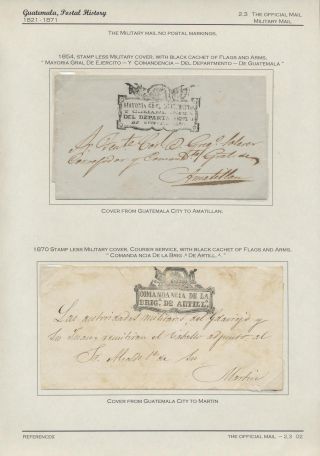 Guatemala, Postal History
1821-1871
2.3 The Official Mail
Military Mail
The Military mail no postal markings.
1854, stamp less Military cover, with black cachet of Flags and Arms,
" Mayoria Gral, De Ejercito – Y Comandencia – Del Departmento – De Guatemala "
MAYORIA GRAL DEL
Y COMAND
DEL DEPARTA
DE GUATEMALA
Al Sr.
Corregidor y Comand
Amatitlan
Cover from Guatemala City to Amatillan.
1870 Stamp less Military cover, Courier service, with black cachet of Flags and Arms,
" Comanda ncia De la Brig .a De Artill. a. "
COMANDANCIA DE LA
BRIG.a DE ARTILL.a
Las autoridades militares del
y
San Juan, remitiran el caballo adjunto al
Sr. Alcalde 1.o de San
Martin
Cover from Guatemala City to Martin
References
The Official Mail – 2.3 02